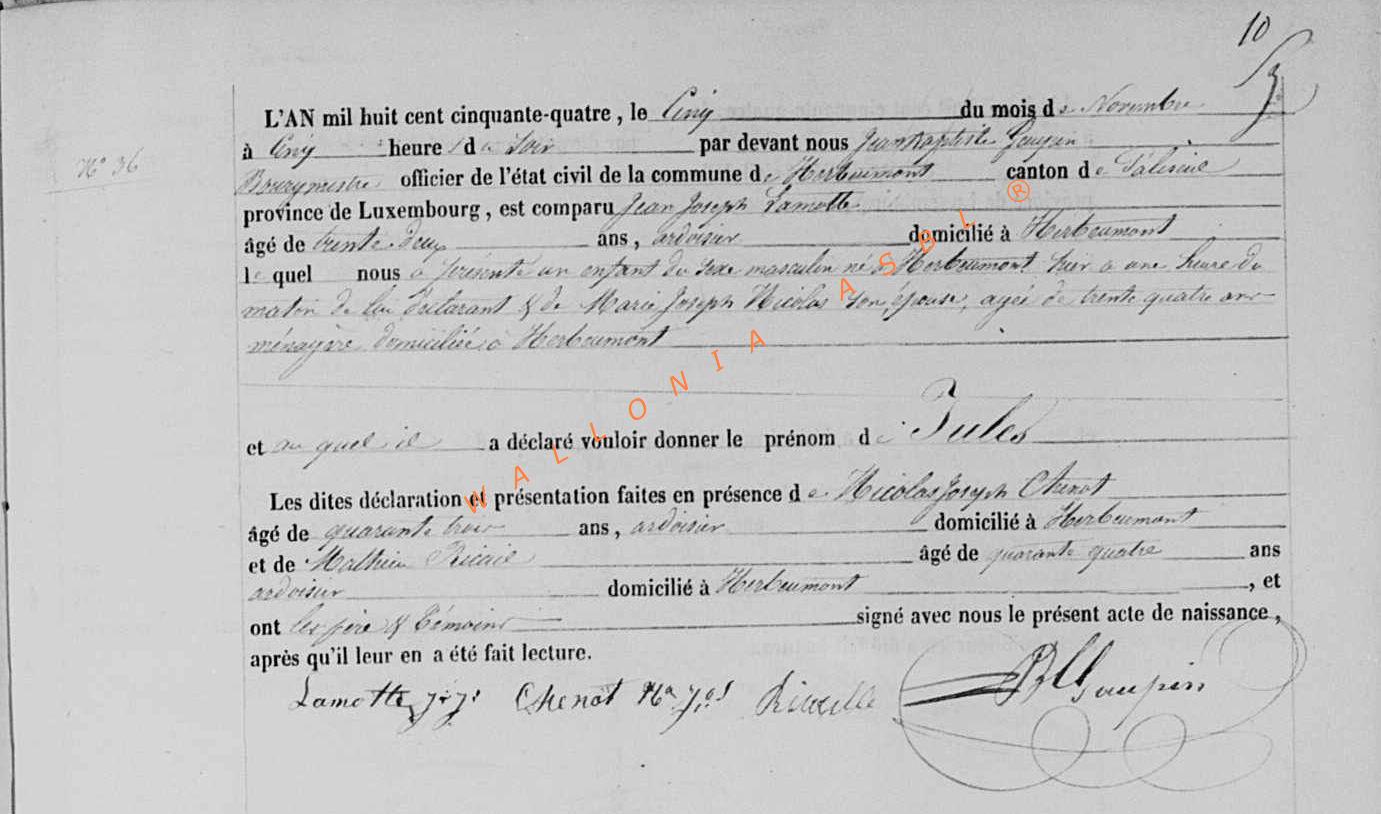 10
L'AN mil huit cent cinquante-quatre, le Cinq du mois de Novembre
N° 36
à Cinq heures de Soir par devant nous Jean Baptiste Goupin
Bourgmestre officier de l'état civil de la commune de Herbeumont canton de Paliseul
province de Luxembourg, est comparu Jean Joseph Lamotte
âgé de trente deux ans, ardoisier domicilié à Herbeumont
le quel nous a présenté un enfant du sexe masculin né à Herbeumont hier à une heure du
matin de lui déclarant & de Marie Joseph Nicolas son épouse, agée de trente quatre ans
ménagère domiciliée à Herbeumont
et au quel il a déclaré vouloir donner le prénom de Jules
Les dites déclaration et présentation faites en présence de Nicolas Joseph Chenot
âgé de quarante trois ans, ardoisier domicilié à Herbeumont
et de Mathieu Ricail âgé de quarante quatre ans
ardoisier domicilié à Herbeumont, et
ont les père & témoins signé avec nous le présent acte de naissance,
après qu'il leur en a été fait lecture.
Lamotte J: J: Chenot Na Jos Goupin
WALLONIA ASBL ®